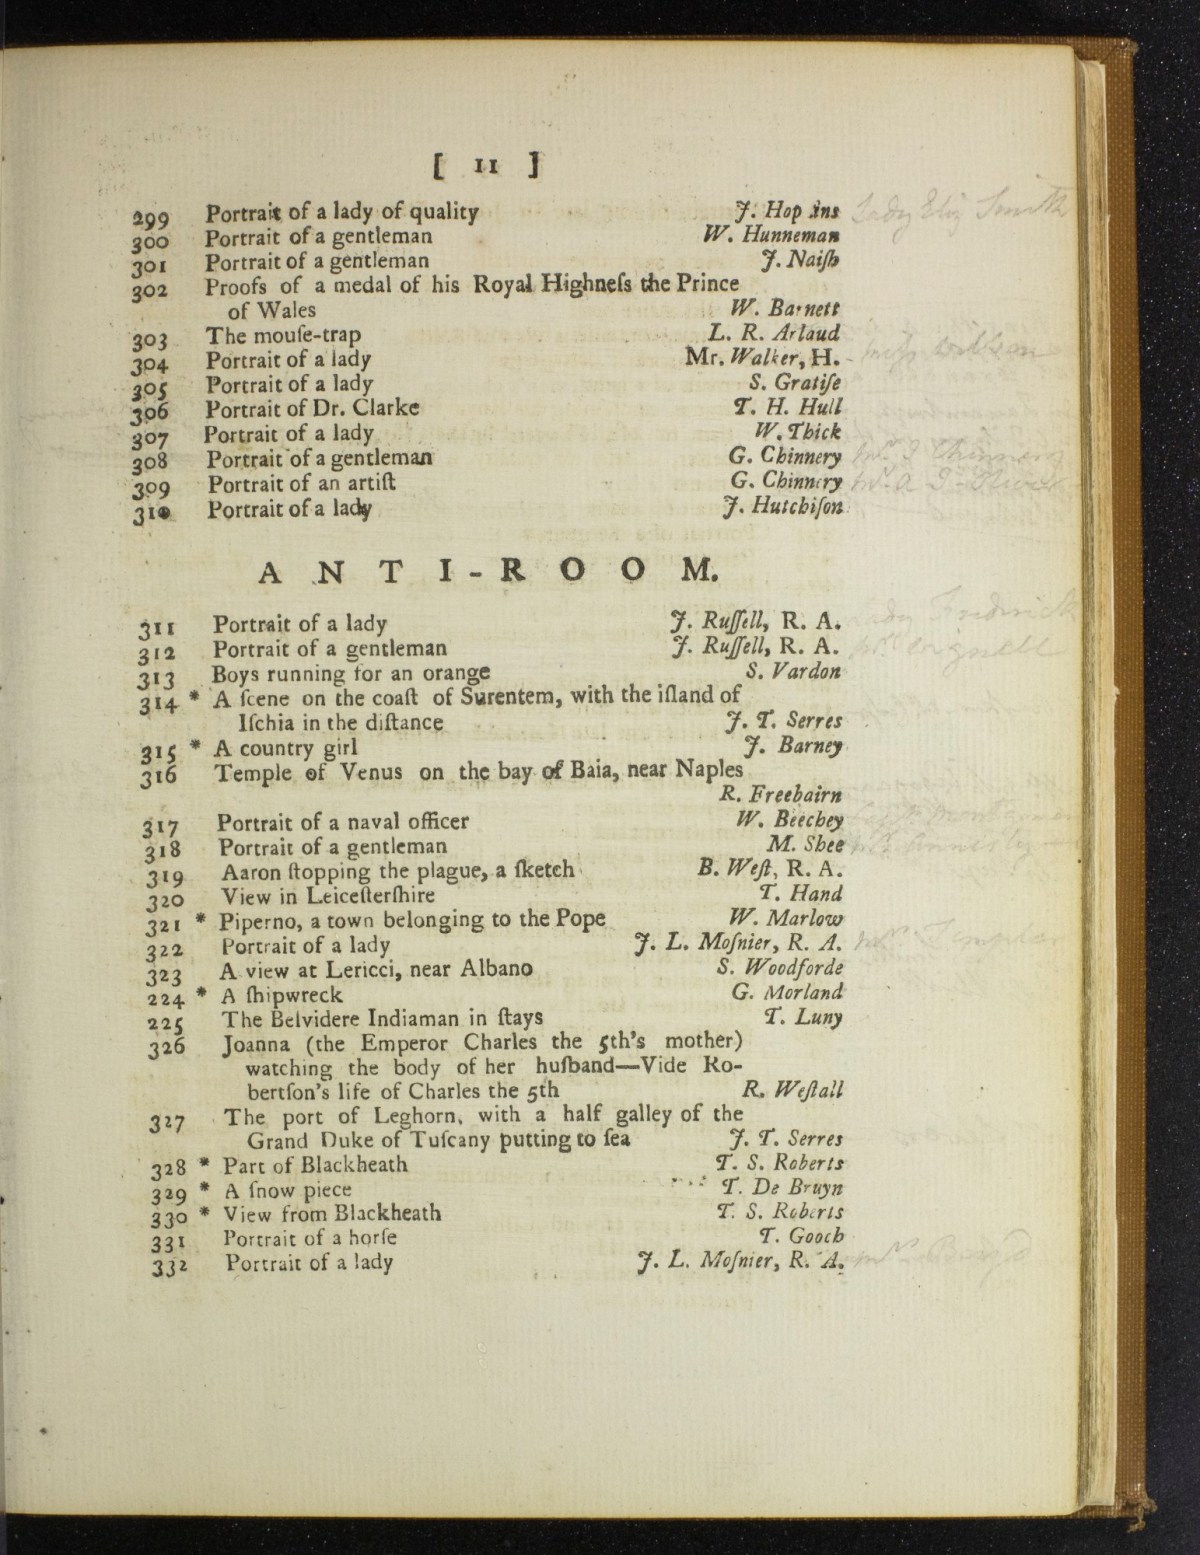 [ 11 ]
299 Portrait of a lady of quality J. Hop ins Lady Eliz Smith
300 Portrait of a gentleman W. Hunneman
301 Portrait of a gentleman J. Naiſh
302 Proofs of a medal of his Royal Highneſs the Prince
of Wales W. Barnett
303 The mouſe-trap L. R. Arlaud
304 Portrait of a lady Mr. Walker, H. - Miſs Wilson
305 Portrait of a lady S. Gratiſe
306 Portrait of Dr. Clarke T. H. Hull
307 Portrait of a lady W. Thick
308 Portrait of a gentleman G. Chinnery Mr. Chinnery
309 Portrait of an artiſt G. Chinnery
310 Portrait of a lady J. Hutchiſon
ANTI-ROOM.
311 Portrait of a lady J. Ruſſell, R. A. Lady Frederick
312 Portrait of a gentleman J. Ruſſell, R. A. Mr. Wignell
313 Boys running for an orange S. Vardon
314 * A ſcene on the coaſt of Surentem, with the iſland of
Iſchia in the diſtance J. T. Serres
315 * A country girl J. Barney
316 Temple of Venus on the bay of Baia, near Naples
R. Freebairn
317 Portrait of a naval officer W. Beechey Capt. Montgomery
318 Portrait of a gentleman M. Shee Mr. Annesley
319 Aaron ſtopping the plague, a ſketch B. Weſt, R. A.
320 View in Leiceſterſhire T. Hand
321 * Piperno, a town belonging to the Pope W. Marlow
322 Portrait of a lady J. L. Moſnier, R. A. Mrs.
323 A view at Lericci, near Albano S. Woodforde
224 * A ſhipwreck G. Morland
225 The Belvidere Indiaman in ſtays T. Luny
326 Joanna (the Emperor Charles the 5th's mother)
watching the body of her huſband—Vide Ro-
bertſon's life of Charles the 5th R. Weſtall
327 The port of Leghorn, with a half galley of the
Grand Duke of Tuſcany putting to ſea J. T. Serres
328 * Part of Blackheath T. S. Roberts
329 * A ſnow piece T. De Bruyn
330 * View from Blackheath T. S. Roberts
331 Portrait of a horſe T. Gooch
332 Portrait of a lady J. L. Moſnier, R. A. Mrs.